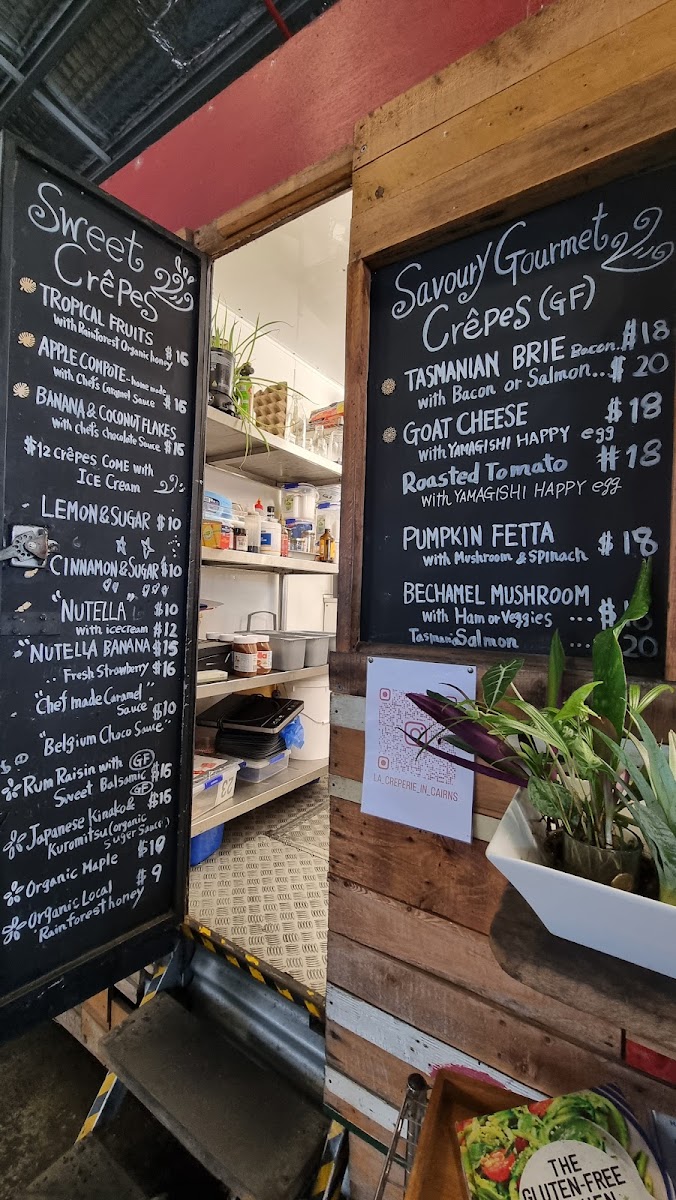 Sweet
Crêpes
TROPICAL FRUITS
with Rainforest Organic honey $16
APPLE COMPOTE - home made
with Chef's Caramel Sauce $16
BANANA & COCONUT FLAKES
with chef's chocolate Sauce $15
$12 crêpes COME with
ICE Cream
LEMON & SUGAR $10
CINNAMON & SUGAR $10
"NUTELLA" $10
with icecream $12
"NUTELLA BANANA $15
.. Fresh Strawberry $16
"Chef made Caramel
Sauce" $10
"Belgium Choco Sauce"
Rum Raisin with GF
Sweet Balsamic $15
Japanese Kinako & GF $16
Kuromitsu (organic
suger Sauce)
Organic Maple $10
Organic Local $9
Rainforest honey
Savoury Gourmet
Crêpes (GF)
TASMANIAN BRIE Bacon.. $18
with Bacon or Salmon... $20
GOAT CHEESE $18
with YAMAGISHI HAPPY egg
Roasted Tomato $18
with YAMAGISHI HAPPY egg
PUMPKIN FETTA
with Mushroom & SPinach $18
BECHAMEL MUSHROOM
with Ham or Veggies ... $
Tasmania Salmon ... 20
LA_CREPERIE_IN_CAIRNS
THE
GLUTEN-FREE